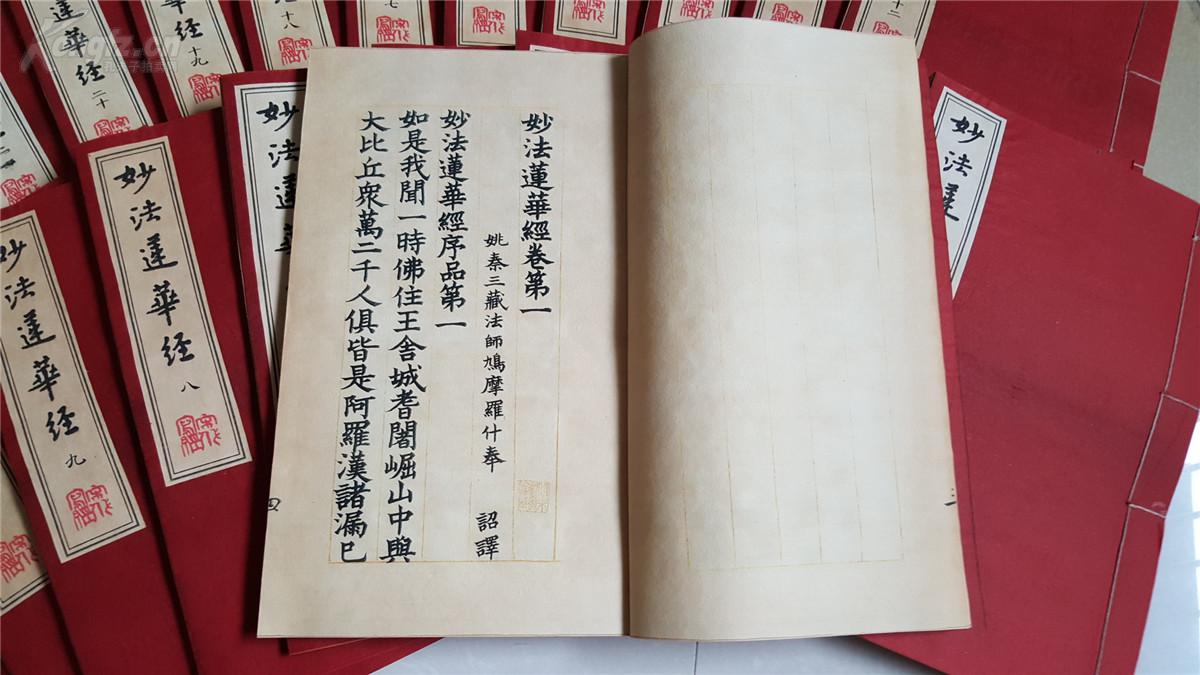 妙法蓮華經卷第一
姚秦三藏法師鳩摩羅什奉 詔譯
妙法蓮華經序品第一
如是我聞一時佛住王舍城耆闍崛山中與
大比丘衆萬二千人俱皆是阿羅漢諸漏已
三
四
妙法蓮
妙法蓮華
妙法蓮華经 八
妙法蓮華经 九
蓮華经 二十
经 十九
十八
七
十二